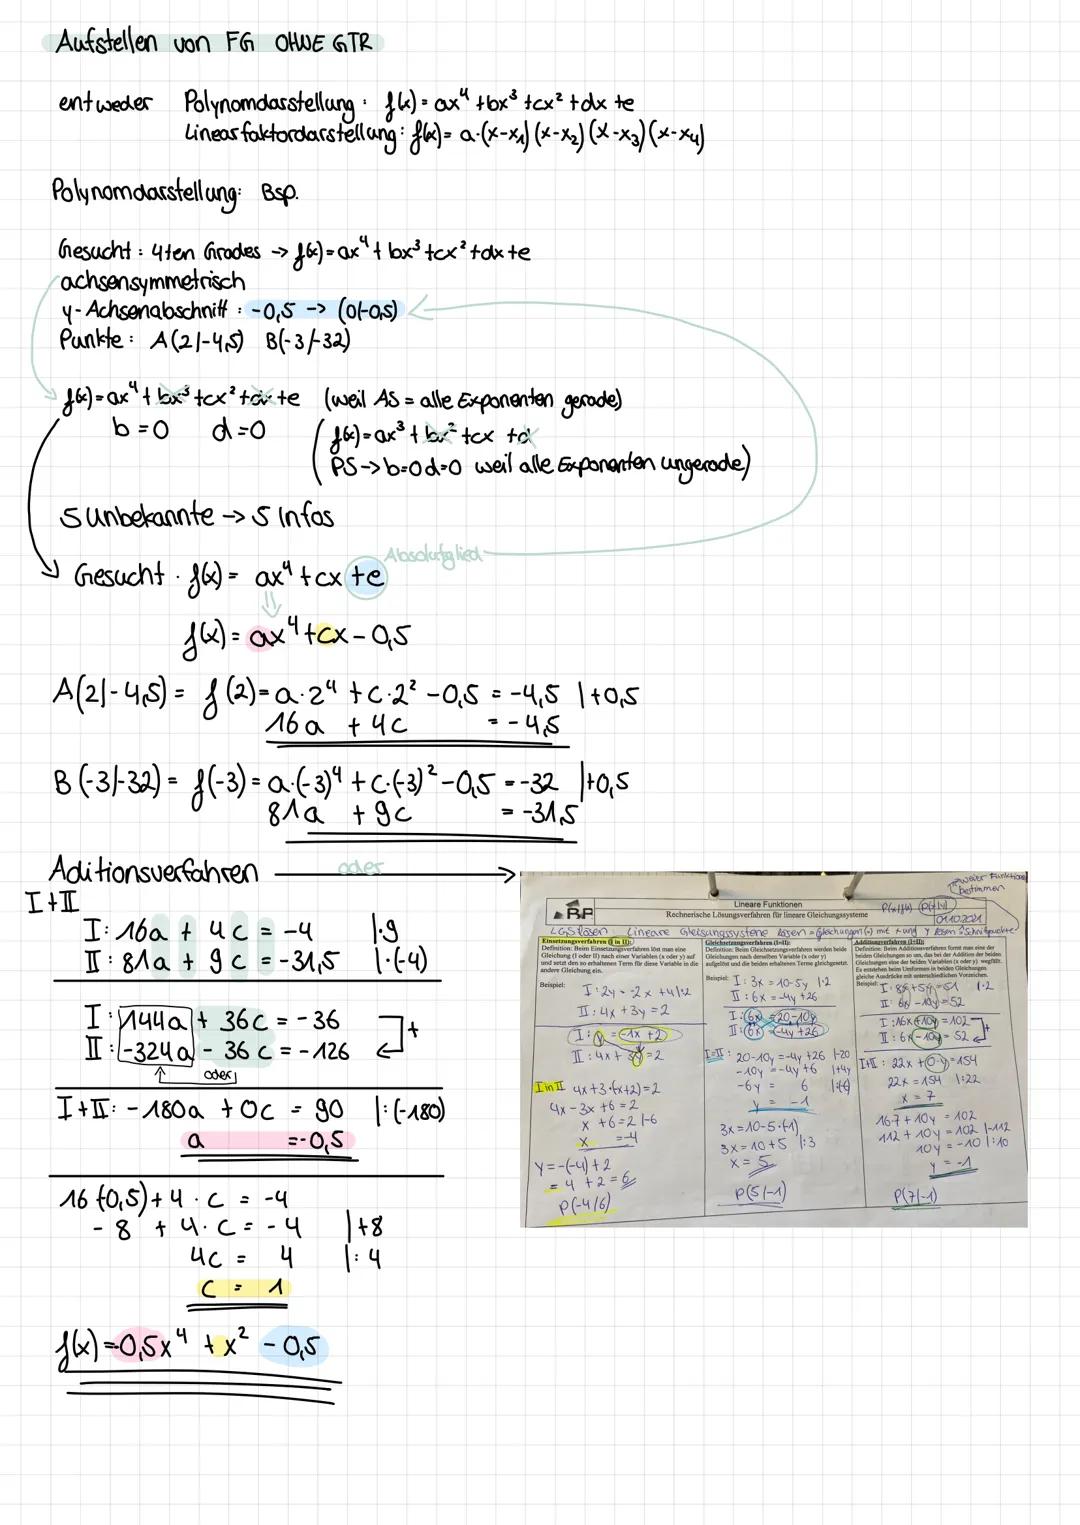 Aufstellen von FG OHNE GTR
entweder Polynomdarstellung: f(x) = ax⁴ + bx³ + cx² + dx + e
Linearfaktordarstellung: f(x) = a·(x-x₁)(x-x₂)(x-x₃)(x-x₄)
Polynomdarstellung: Bsp.
Gesucht: 4ten Grades -> f(x) = ax⁴ + bx³ + cx² + dx + e
achsensymmetrisch
y-Achsenabschnitt: -0,5 -> (0/-0,5)
Punkte: A(2/-4,5) B(-3/-32)
f(x) = ax⁴ + bx³ + cx² + dx + e (weil AS = alle Exponenten gerade)
b = 0 d = 0
f(x) = ax³ + bx² + cx + d
PS -> b=0 d=0 weil alle Exponenten ungerade)
5 Unbekannte -> 5 Infos
Absolutglied
Gesucht. f(x) = ax⁴ + cx + e
f(x) = ax⁴ + cx - 0,5
A(2/-4,5) = f(2) = a·2⁴ + c·2² - 0,5 = -4,5 |+0,5
16a + 4c = -4,5
B(-3/-32) = f(-3) = a·(-3)⁴ + c·(-3)² - 0,5 = -32 |+0,5
81a + 9c = -31,5
Aditionsverfahren oder
I+II
I: 16a + 4c = -4 |·9
II: 81a + 9c = -31,5 |·(-4)
I: 144a + 36c = -36
II: -324a - 36c = -126 +
oder
I+II: -180a + 0c = 90 |:(-180)
a = -0,5
16·(-0,5) + 4·c = -4
-8 + 4·c = -4 |+8
4c = 4 |:4
c = 1
f(x) = -0,5x⁴ + x² - 0,5
zweier Funktionen bestimmen
BP
Lineare Funktionen
Rechnerische Lösungsverfahren für lineare Gleichungssysteme
P(x|y)
01.10.2021
LGS lösen Lineare Gleichungssysteme lösen = Gleichungen(x) mit x und y lösen = Schnittpunkte
Einsetzungsverfahren (I in II):
Definition: Beim Einsetzungsverfahren löst man eine
Gleichung (I oder II) nach einer Variablen (x oder y) auf
und setzt den so erhaltenen Term für diese Variable in die
andere Gleichung ein.
Beispiel:
I: 2y = -2x + 4 |:2
II: 4x + 3y = 2
I: y = -1x + 2
II: 4x + 3y = 2
I in II 4x + 3·(-x+2) = 2
4x - 3x + 6 = 2
x + 6 = 2 |-6
x = -4
y = -(-4) + 2
= 4 + 2 = 6
P(-4/6)
Gleichsetzungsverfahren (I=II):
Definition: Beim Gleichsetzungsverfahren werden beide
Gleichungen nach derselben Variable (x oder y)
aufgelöst und die beiden erhaltenen Terme gleichgesetzt.
Beispiel:
I: 3x = 10-5y |·2
II: 6x = -4y + 26
I: 6x = 20-10y
II: 6x = -4y + 26
I=II: 20-10y = -4y + 26 |-20
-10y = -4y + 6 |+4y
-6y = 6 |:(-6)
y = -1
3x = 10-5·(-1)
3x = 10 + 5 |:3
x = 5
P(5/-1)
Additionsverfahren (I+II):
Definition: Beim Additionsverfahren formt man eine der
beiden Gleichungen so um, das bei der Addition der beiden
Gleichungen eine der beiden Variablen (x oder y) wegfällt.
Es entstehen beim Umformen in beiden Gleichungen
gleiche Ausdrücke mit unterschiedlichen Vorzeichen.
Beispiel:
I: 8x + 5y = 51 |·2
II: 6x - 10y = 52
I: 16x + 10y = 102
II: 6x - 10y = 52 +
I+II: 22x + 0·y = 154
22x = 154 |:22
x = 7
16·7 + 10y = 102
112 + 10y = 102 |-112
10y = -10 |:10
y = -1
P(7/-1)